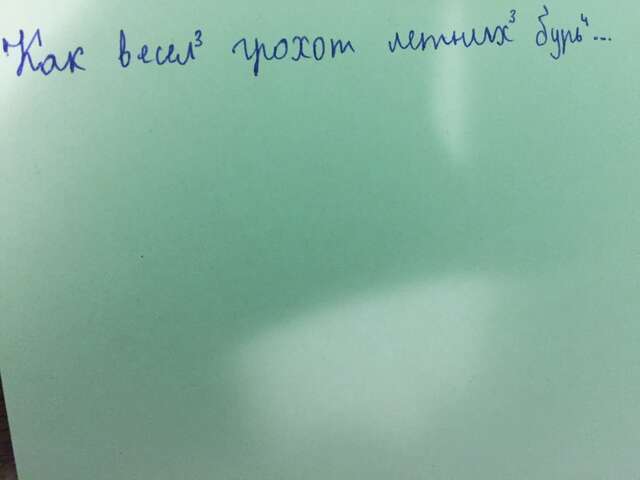 Как весел³ грохот летних³ бурь⁴...